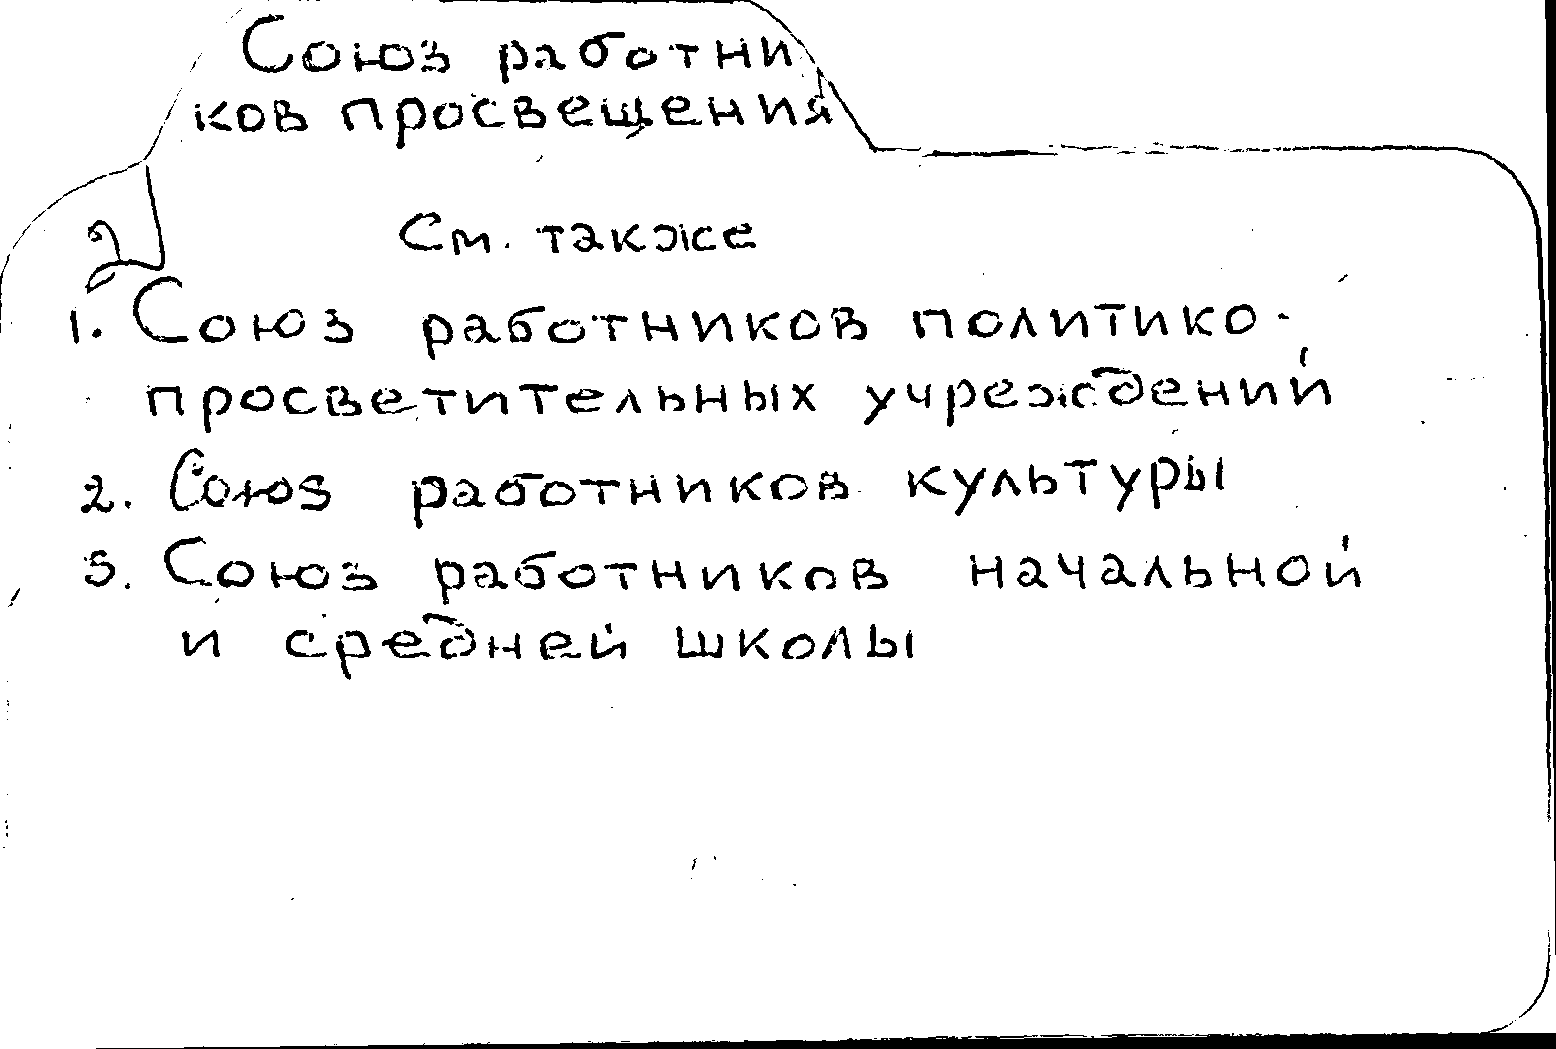 Союз работни
ков просвещения
2
См. также
1. Союз работников политико-
просветительных учреждений
2. Союз работников культуры
3. Союз работников начальной
и средней школы